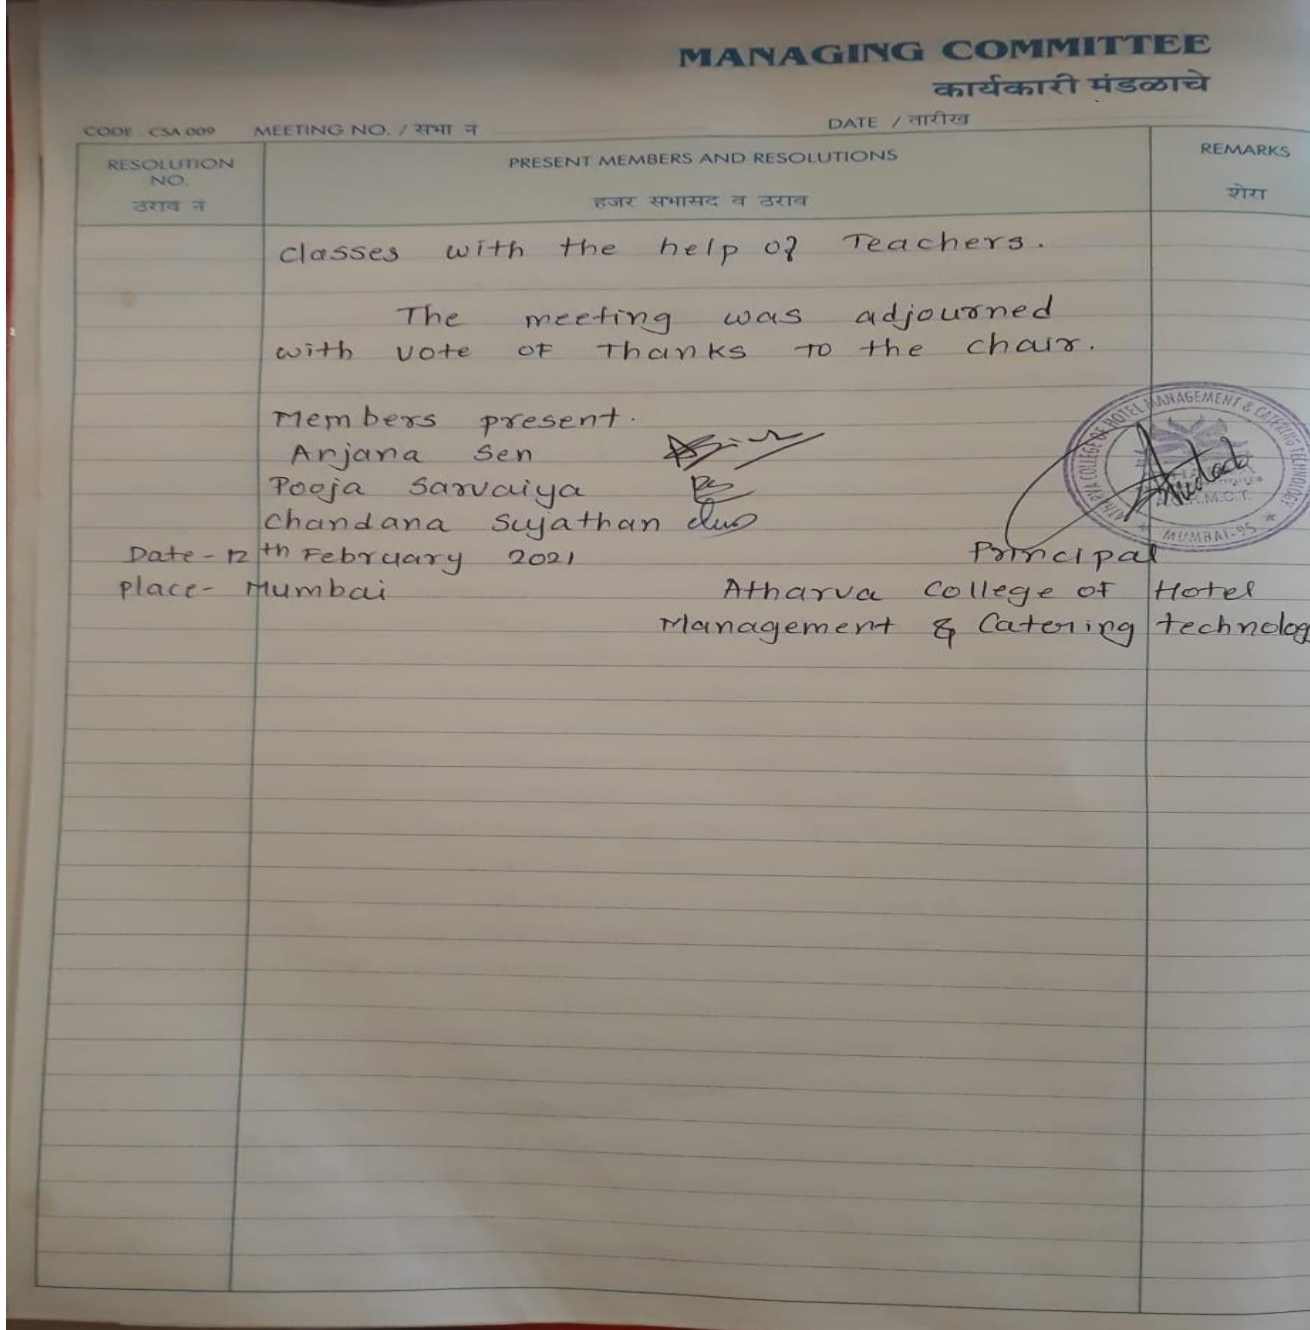 MANAGING COMMITTEE
कार्यकारी मंडळाचे
CODE : CSA 009 MEETING NO. / सभा नं DATE / तारीख
RESOLUTION NO. PRESENT MEMBERS AND RESOLUTIONS REMARKS
ठराव नं हजर सभासद व ठराव शेरा
classes with the help of Teachers.
The meeting was adjourned
with vote of Thanks to the chair.
Members present.
Anjana Sen
Pooja Sarvaiya
Chandana Sujathan
Date - 12th February 2021 Principal
Place - Mumbai Atharva College of Hotel
Management & Catering technolog
COLLEGE OF HOTEL MANAGEMENT & CATERING TECHNOLOGY
MUMBAI-95